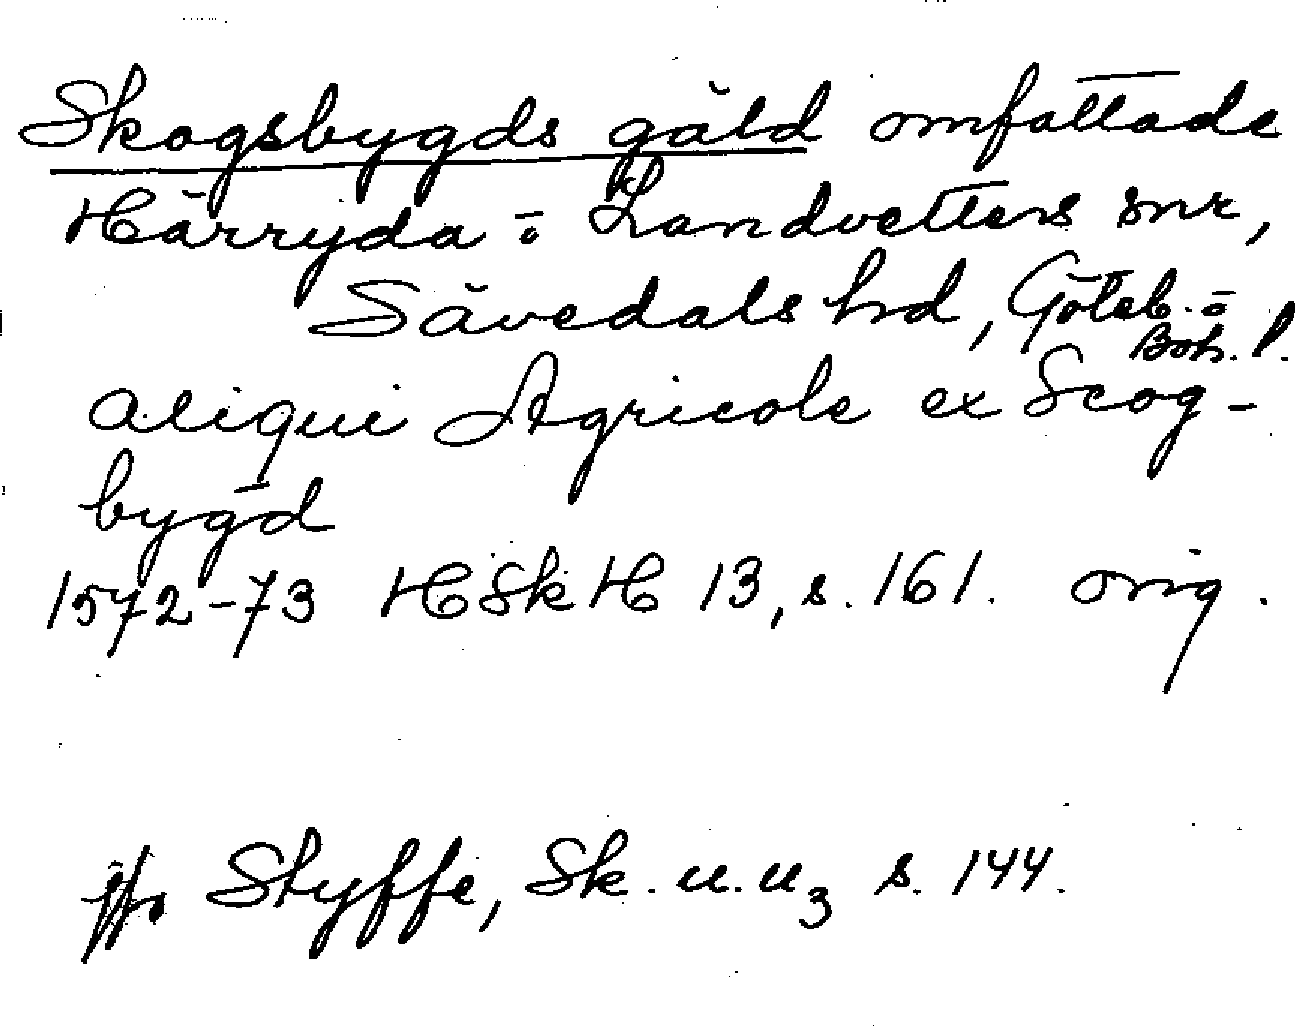 Skogsbygds gäld omfattade
Härryda o. Landvetters snr,
Sävedals hd, Göteb. o.
Boh. l.
aliqui Agricole ex Scog-
bygd
1572-73 HSkH 13, s. 161. orig.
jfr Styffe, Sk. u. u₃ s. 144.